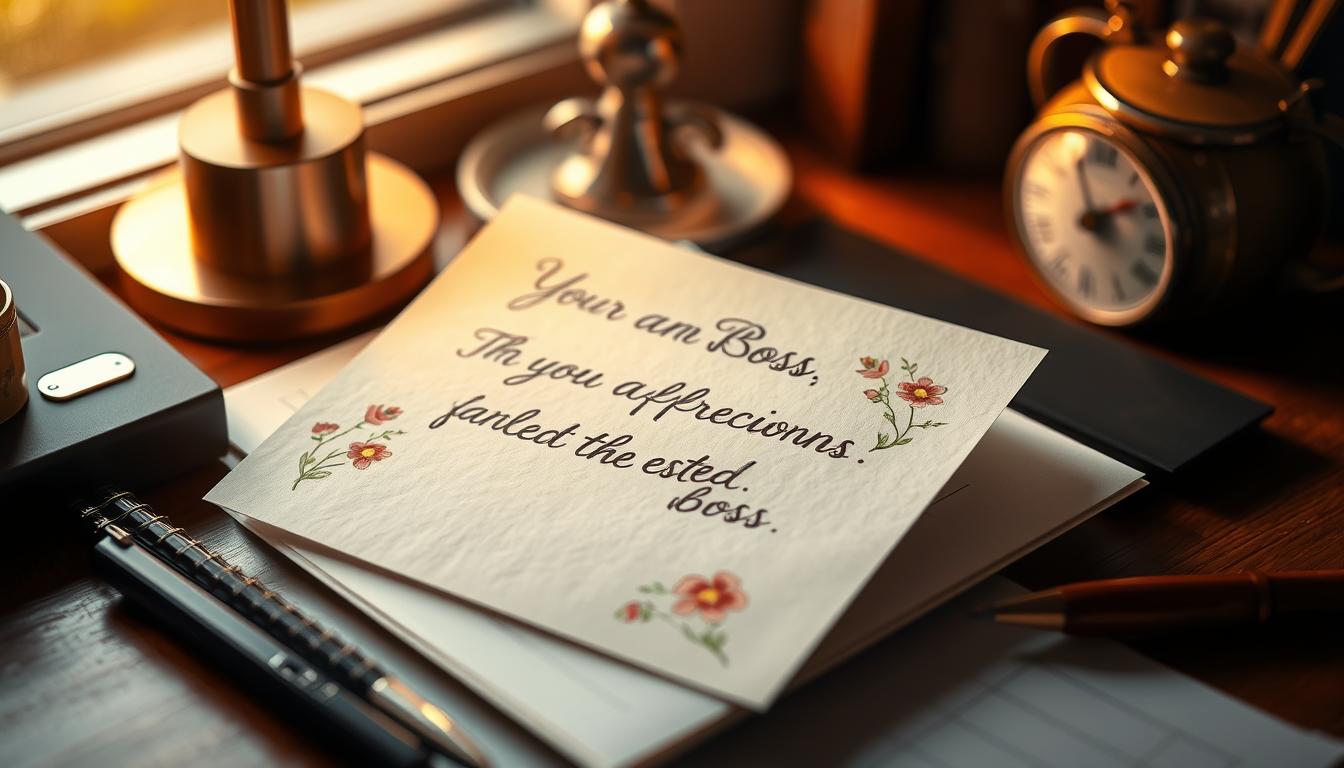 Your am Boss,
Th you affrecionns.
fanled the ested.
boss.